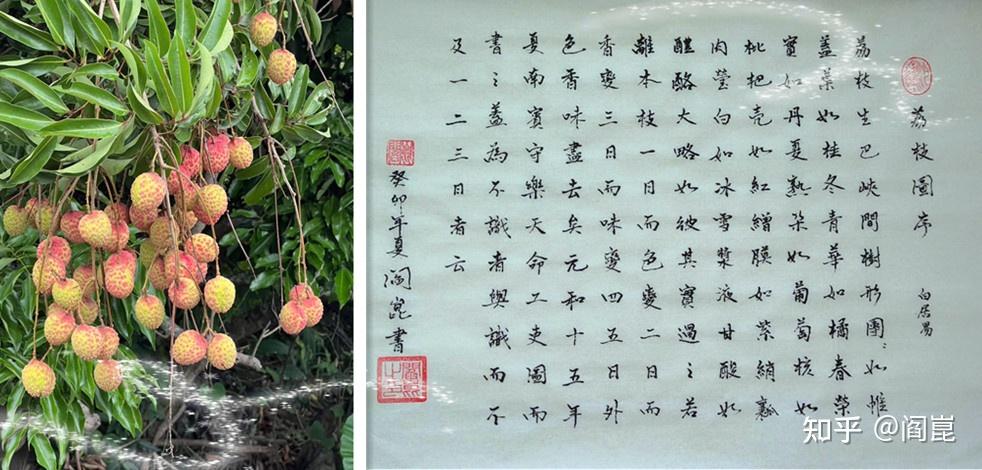 荔枝圖序 白居易
荔枝生巴峽間樹形團〻如帷
蓋葉如桂冬青華如橘春榮
實如丹夏熟朵如葡萄核如
枇杷壳如紅繒膜如紫綃瓤
肉瑩白如冰雪漿液甘酸如
醴酪大略如彼其實過之若
離本枝一日而色變二日而
香變三日而味變四五日外
色香味盡去矣元和十五年
夏南賓守樂天命工吏圖而
書之蓋為不識者與識而不
及一二三日者云
癸卯年夏阎崑書
知乎 @阎崑